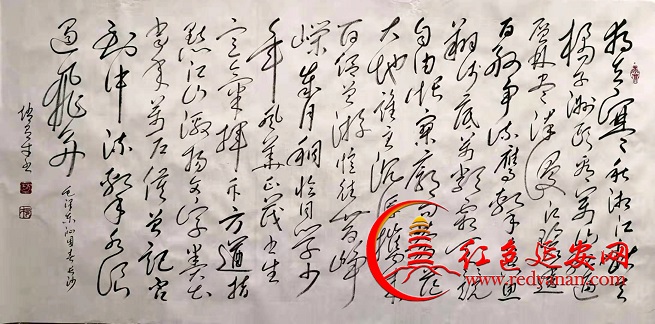 独立寒秋湘江北去
橘子洲头看万山红遍
层林尽染漫江碧透
百舸争流鹰击长空鱼
翔浅底万类霜天竞
自由怅寥廓问苍茫
大地谁主沉浮携来
百侣曾游忆往昔峥
嵘岁月稠恰同学少
年风华正茂书生
意气挥斥方遒指
点江山激扬文字粪土
当年万户侯曾记否
到中流击水浪
遏飞舟
毛泽东沁园春长沙
红色延安网
www.redyanan.com